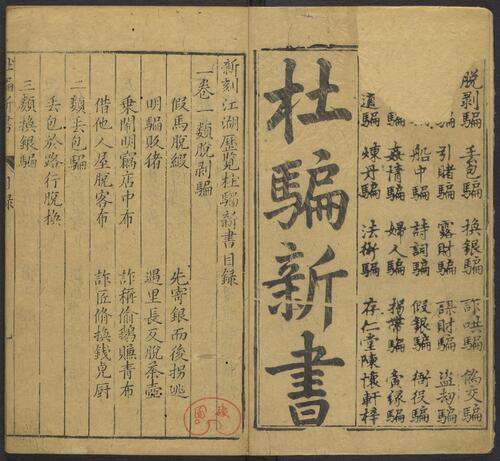 脫剥騙 丟包騙 換銀騙 詐哄騙 偽交騙
騙 引賭騙 露財騙 謀財騙 盜劫騙
騙 船中騙 詩詞騙 假銀騙 衙役騙
騙 姦情騙 婦人騙 拐帶騙 夤緣騙
道騙 煉丹騙 法術騙 存仁堂陳懷軒梓
杜騙新書
新刻江湖歷覽杜騙新書目錄
一卷一類脫剥騙
假馬脫緞 先寄銀而後拐逃
明騙販猪 遇里長反脫茶壺
乘鬧明竊店中布 詐稱偷鵝賺青布
借他人屋脫客布 詐匠修換錢桌厨
二類丟包騙
丟包於路行脫換
三類換銀騙
杜騙新書 目錄